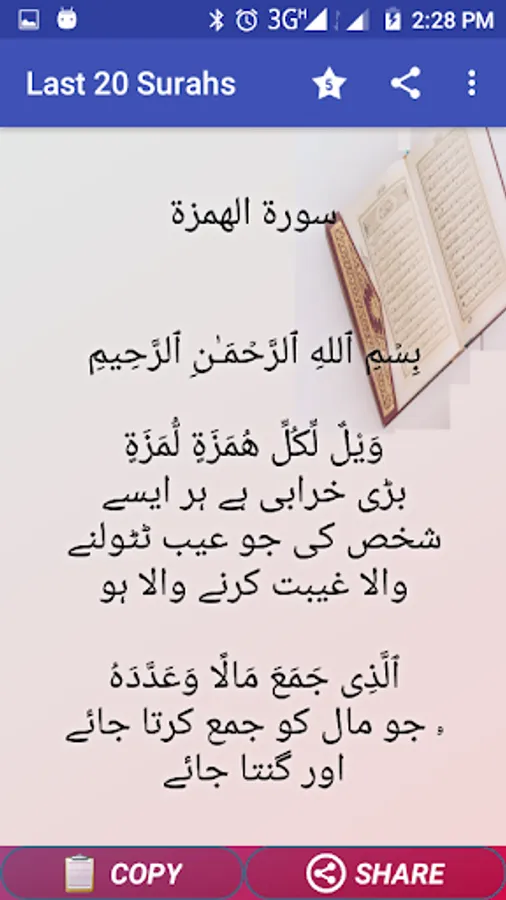 3G H 2:28 PM
Last 20 Surahs 5
سورة الهمزة
بِسْمِ ٱللهِ ٱلرَّحْمَـٰنِ ٱلرَّحِيمِ
وَيْلٌ لِّكُلِّ هُمَزَةٍ لُّمَزَةٍ
بڑی خرابی ہے ہر ایسے
شخص کی جو عیب ٹٹولنے
والا غیبت کرنے والا ہو
ٱلَّذِى جَمَعَ مَالًا وَعَدَّدَهُ
ۥ جو مال کو جمع کرتا جائے
اور گنتا جائے
COPY SHARE